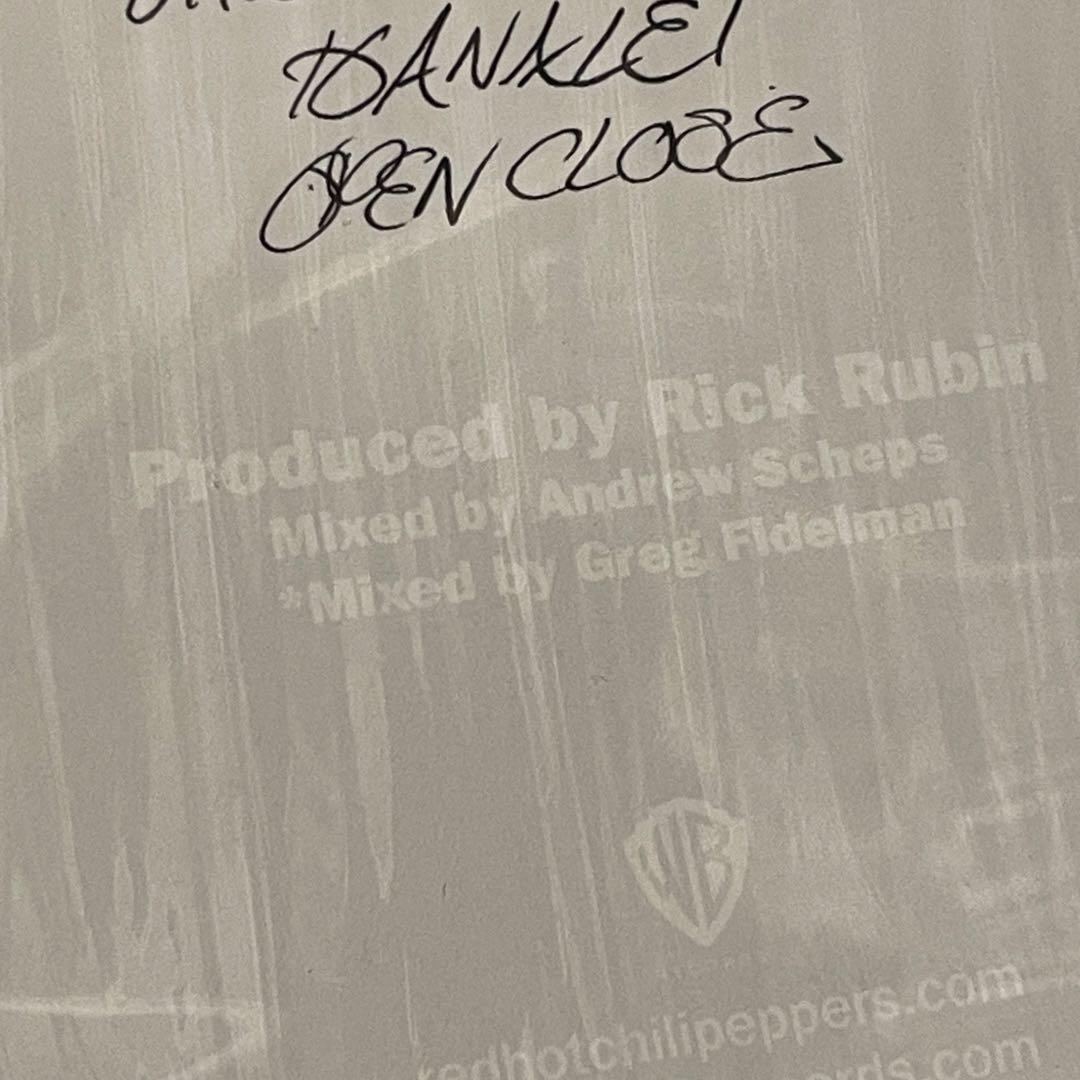 OPEN CLOSE
Produced by Rick Rubin
Mixed by Andrew Scheps
*Mixed by Greg Fidelman
WB
redhotchilipeppers.com
rds.com